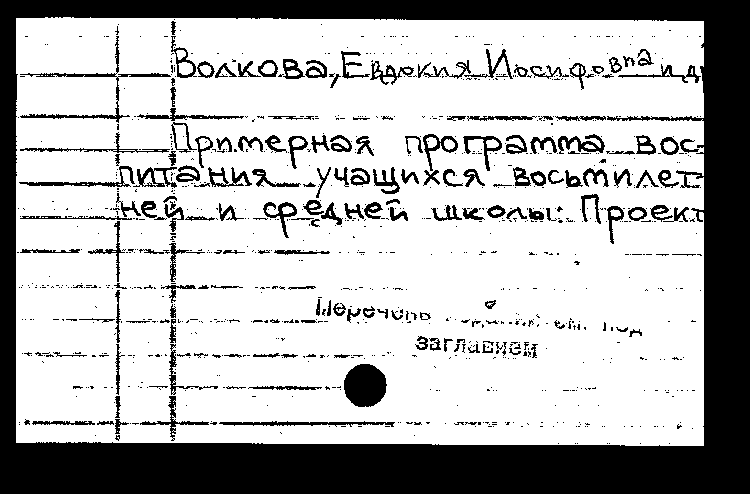 Волкова, Евдокия Иосифовна и др
Примерная программа вос-
питания учащихся восьмилет-
ней и средней школы: Проект
Перечень изданий см. под
заглавием